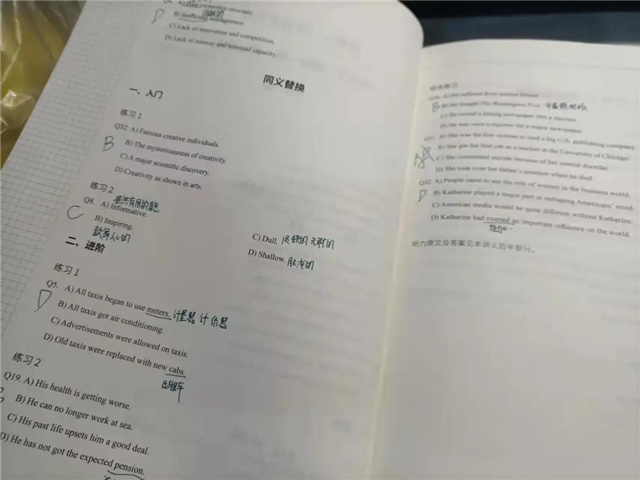 B) Inefficient management.
C) Lack of innovation and competition.
D) Lack of runway and terminal capacity.
同义替换
一、入门
练习 1
Q32. A) Famous creative individuals.
B
B) The mysteriousness of creativity.
C) A major scientific discovery.
D) Creativity as shown in arts.
练习 2
Q8. A) Informative.
C
B) Inspiring.
鼓舞人心的
C) Dull.
D) Shallow. 肤浅的
二、进阶
练习 1
Q5. A) All taxis began to use meters.
D
B) All taxis got air conditioning.
C) Advertisements were allowed on taxis.
D) Old taxis were replaced with new cabs.
出租车
练习 2
Q19. A) His health is getting worse.
B) He can no longer work at sea.
C) His past life upsets him a good deal.
D) He has not got the expected pension.
综合练习
A) She suffered from mental illness.
B
B) She bought The Washington Post.
C) She turned a failing newspaper into a success.
D) She was once a reporter for a major newspaper.
A) She was the first woman to lead a big U.S. publishing company.
B) She got her first job as a teacher at the University of Chicago.
C) She committed suicide because of her mental disorder.
D) She took over her father's position when he died.
Q32. A) People came to see the role of women in the business world.
D
B) Katharine played a major part in reshaping Americans' mind.
C) American media would be quite different without Katharine.
D) Katharine had exerted an important influence on the world.
听力原文及答案见本讲义后半部分。